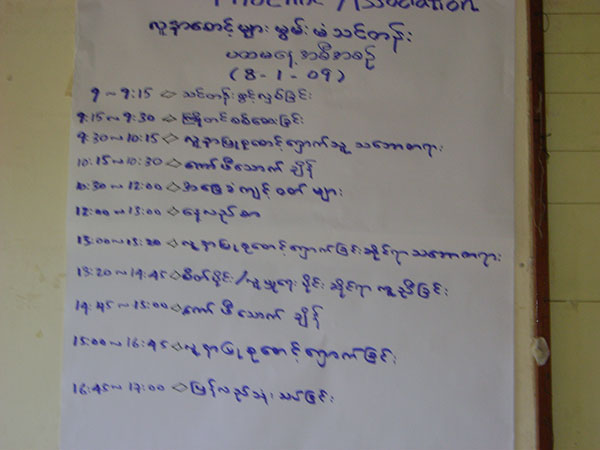 Association
လူနာစောင့်များ မွမ်းမံ သင်တန်း
ပထမနေ့ အစီအစဉ်
(8-1-09)
9 ~ 9:15 ◇ သင်တန်းဖွင့်လှစ်ခြင်း
9:15 ~ 9:30 ◇ ကြိုတင်စစ်ဆေးခြင်း
9:30 ~ 10:15 ◇ လူနာပြုစုစောင့်ရှောက်သူ့ သဘောတရား
10:15 ~ 10:30 ◇ ကော်ဖီသောက် ချိန်
10:30 ~ 12:00 ◇ အခြေခံကျင့်ဝတ် များ
12:00 ~ 13:00 ◇ နေ့လည်စာ
13:00 ~ 13:20 ◇ လူနာပြုစုစောင့်ရှောက်ခြင်းဆိုင်ရာ သဘောတရား
13:20 ~ 14:45 ◇ စိတ်ပိုင်း/လူမှုရေးပိုင်း ဆိုင်ရာ ကူညီခြင်း
14:45 ~ 15:00 ◇ ကော်ဖီသောက် ချိန်
15:00 ~ 16:45 ◇ လူနာပြုစုစောင့်ရှောက်ခြင်း
16:45 ~ 17:00 ◇ ပြန်လည်သုံးသပ်ခြင်း